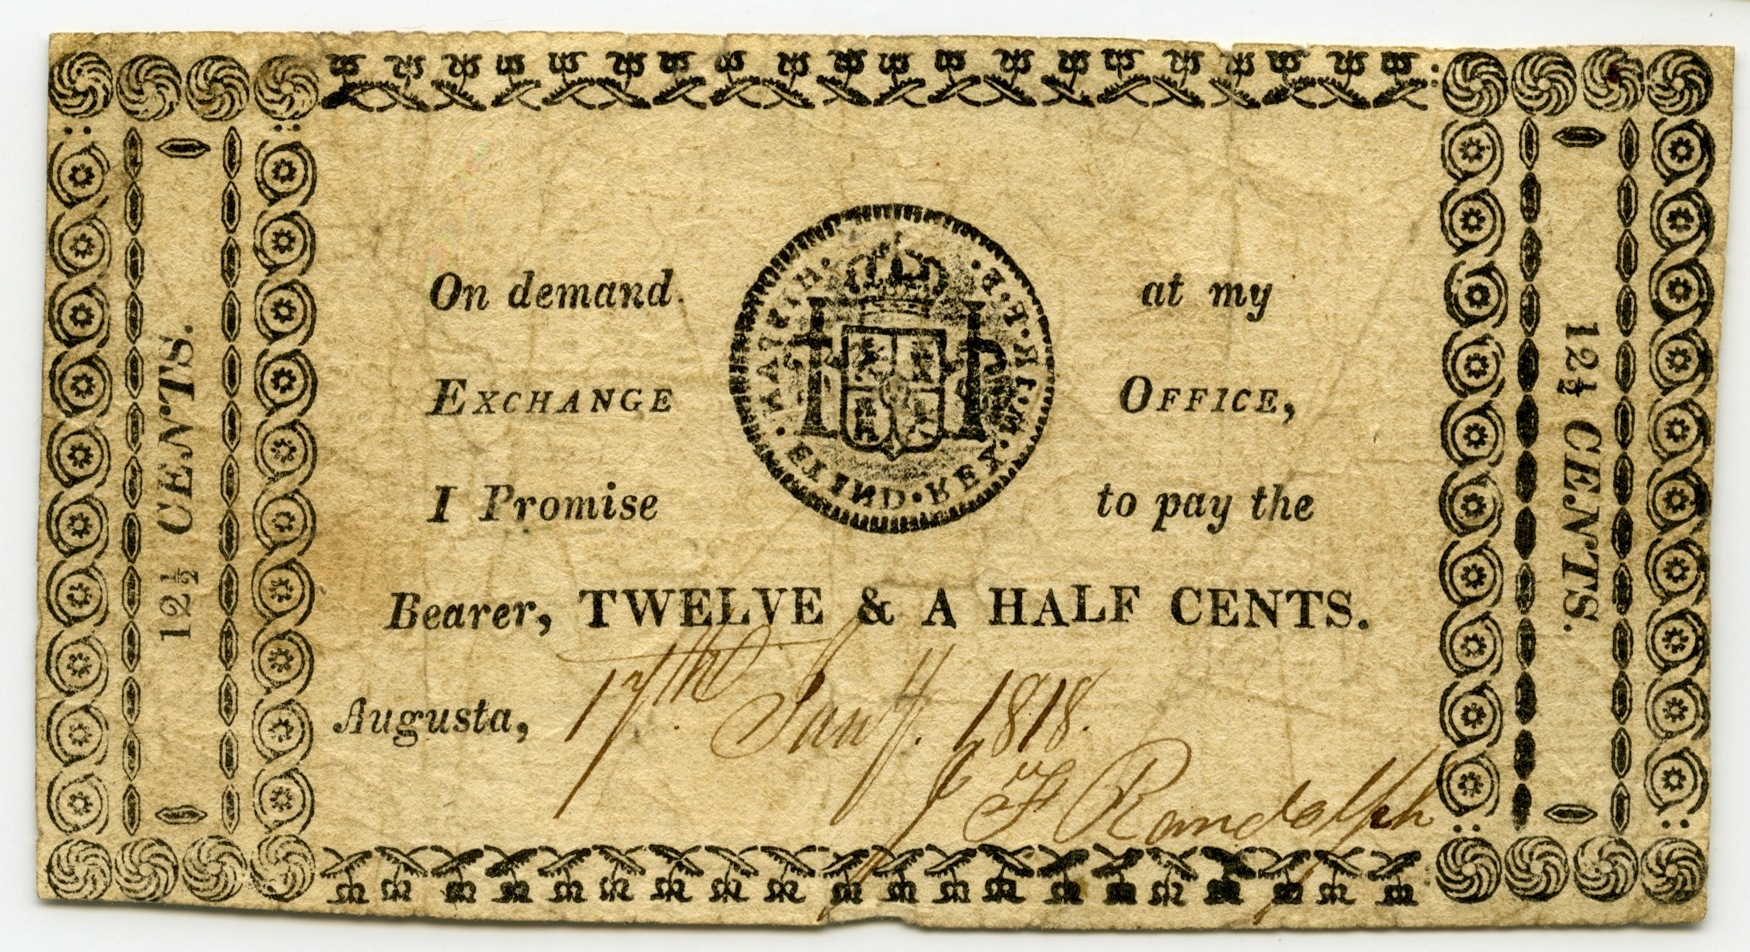 12½ CENTS.
On demand at my
EXCHANGE OFFICE,
I Promise to pay the
Bearer, TWELVE & A HALF CENTS.
Augusta, 17th. Jany. 1818.
F Randolph
·HISPAN·ET IND·REX·
12½ CENTS.